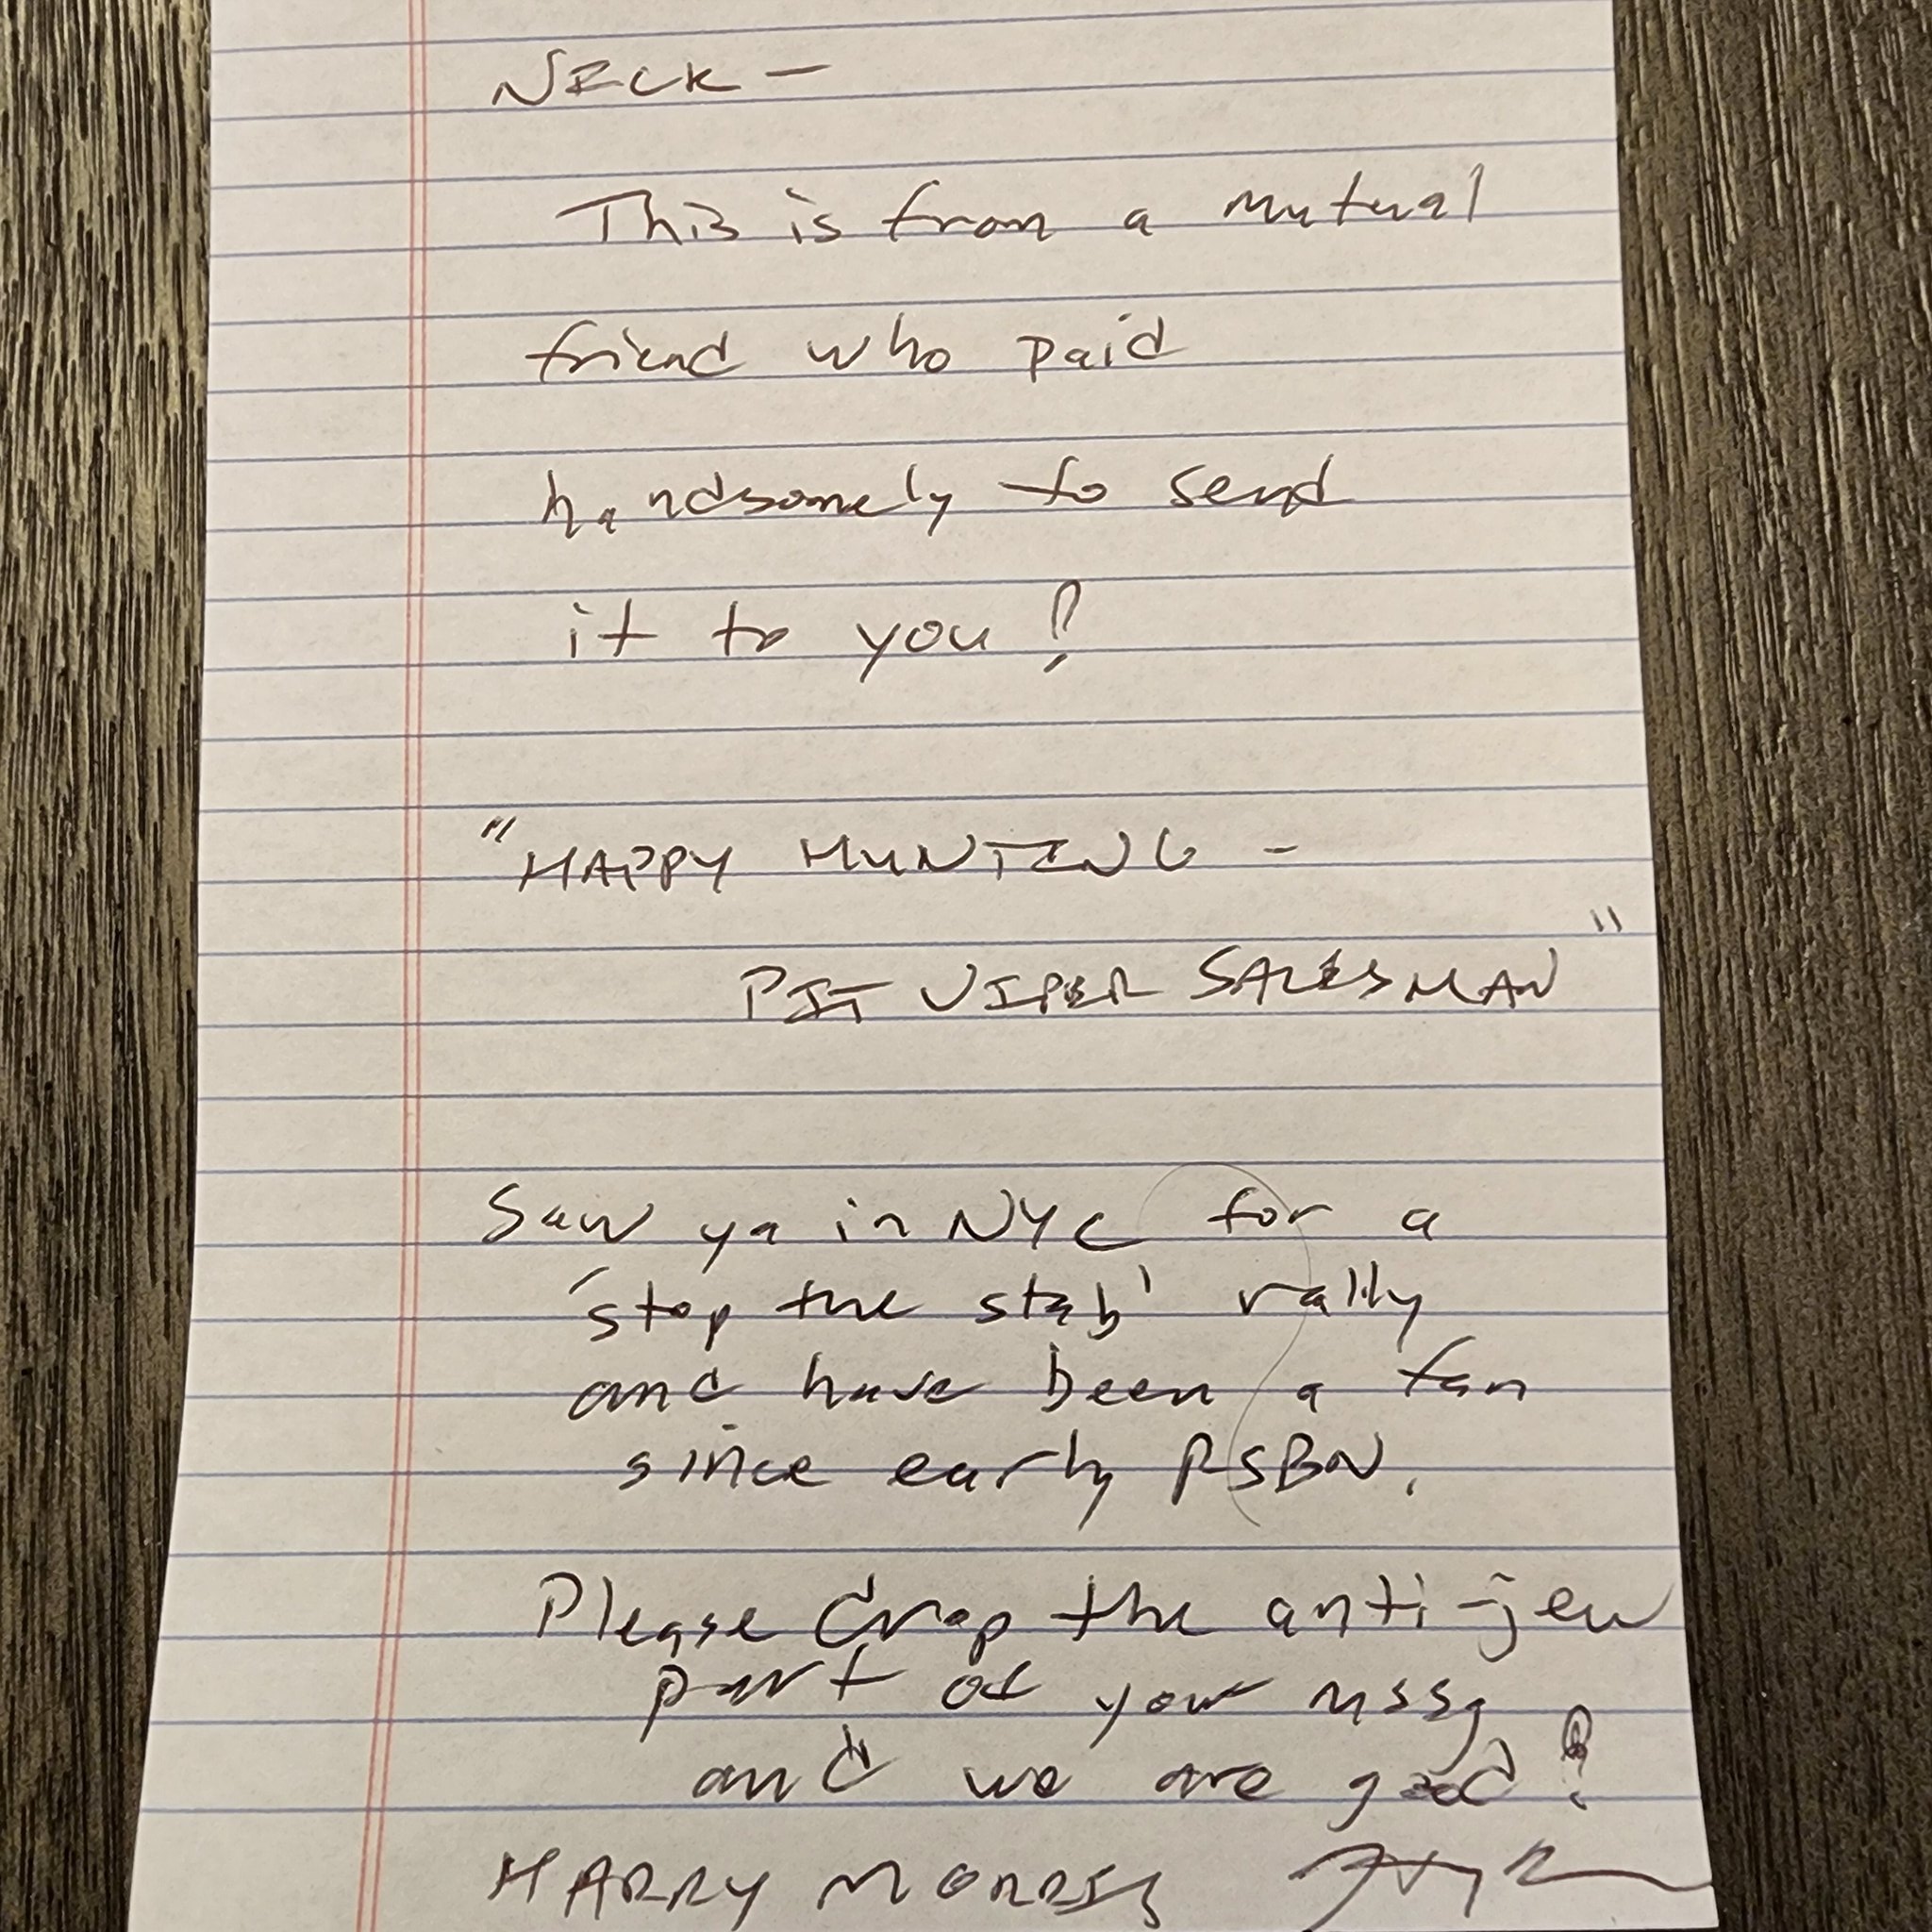 NICK -
This is from a mutual
friend who paid
handsomely to send
it to you!
"HAPPY HUNTING -
PIT VIPER SALESMAN"
Saw ya in NYC for a
'stop the stab' rally
and have been a fan
since early RSBN.
Please drop the anti-jew
part of your mssg
and we are good!
HARRY MORRIS